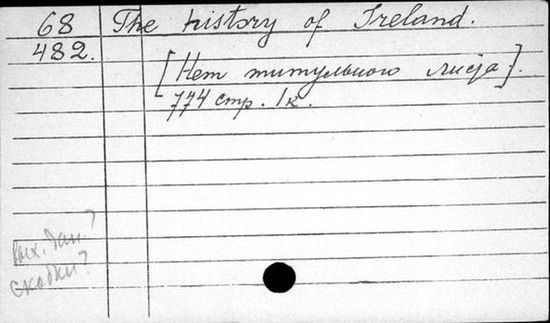 68 The history of Ireland.
482.
[Нет титульного листа].
774 стр. 1к.
Вых. дан.?
скобки?